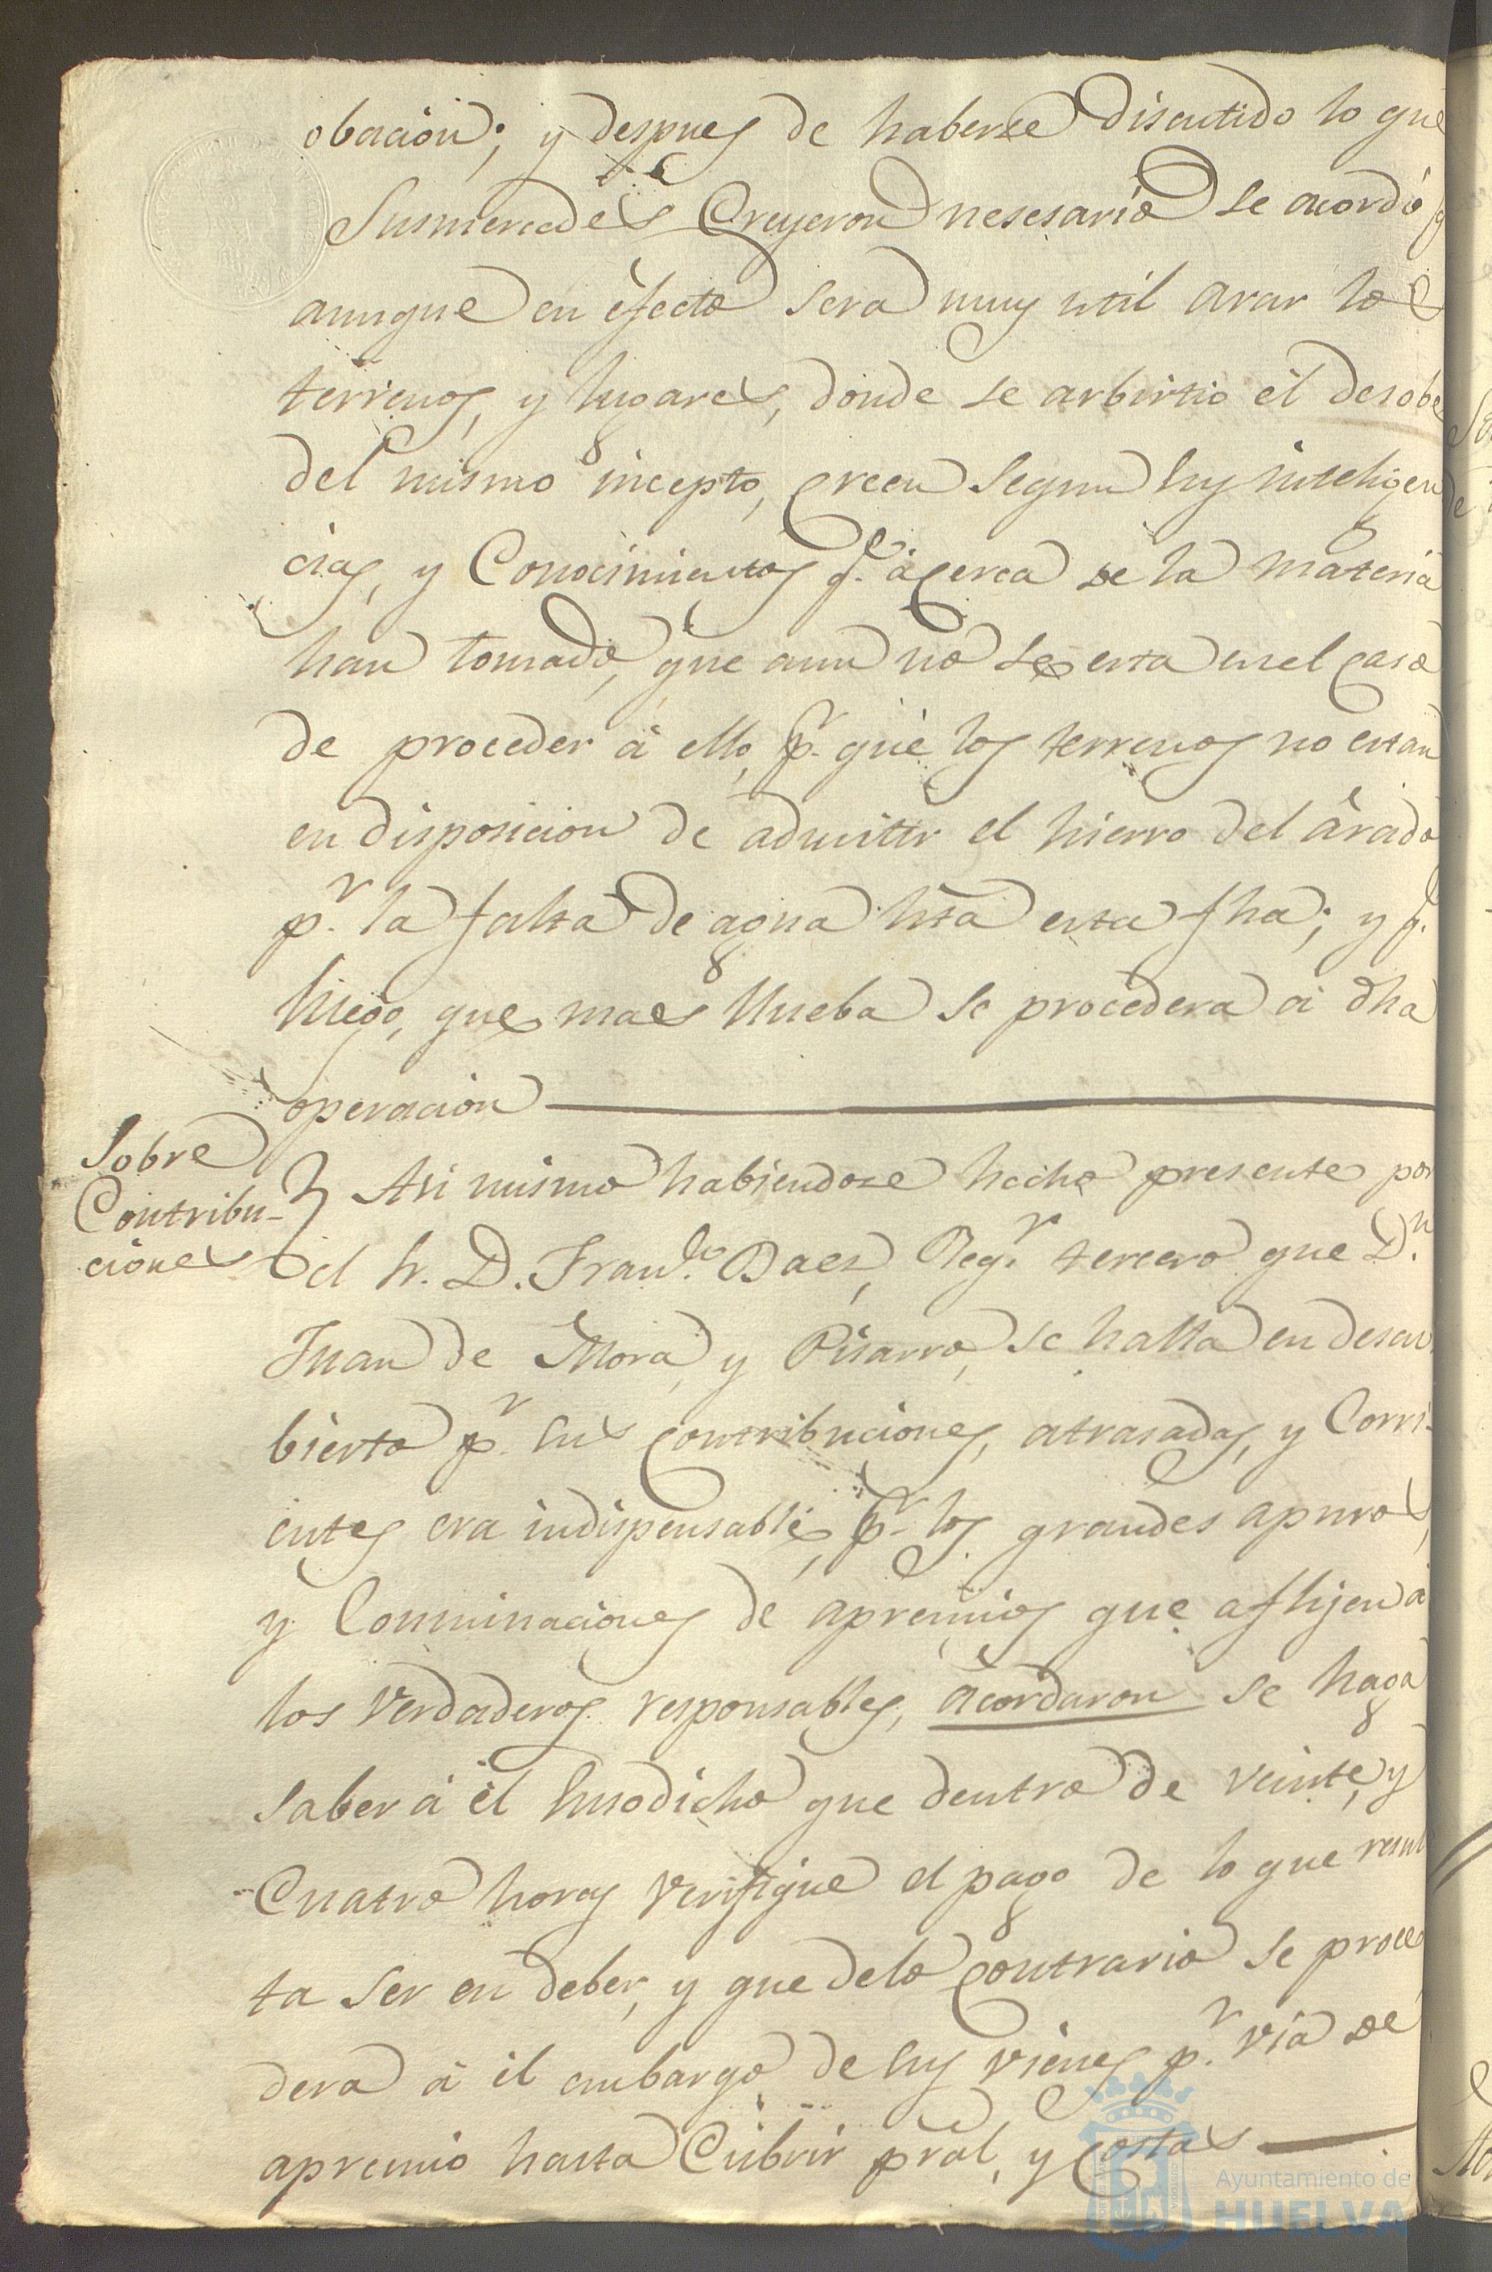 obacion; y despues de haberse discutido lo que
Susmercedes Creyeron nesesario se acordó q
aunque en éfecto sera muy util arar los
terrenos, y lugares, donde se arbirtio él desobe
del mismo incepto, creen segun sus inteligen
cias, y Conocimientos q.e àcerca de la materia
han tomado, que aun no se esta en el caso
de proceder á ello, p.r que los terrenos no estan
en disposicion de admitir el hierro del árado
p.r la falta de agua hta esta fha; y q.e
luego, que mas llueba se procedera á dha
operacion
Sobre
Contribu-
ciones
Asi mismo habiendose hecho presente por
el Sr. D. Fran.co Baez, Reg.r tercero que D.n
Juan de Mora, y Pisarro, se halla en descu
bierto p.r sus contribuciones, atrasadas, y Corri-
entes era indispensable, p.r los grandes apuros,
y Conminaciones de apremios que aflijen á
los verdaderos responsables, acordaron se haga
saber á él susodicho que dentro de veinte, y
Cuatro horas verifique el pago de lo que resul
ta ser en deber, y que de lo contrario se proce
derá á él embargo de sus vienes p.r via de
apremio hasta Cubrir pral, y costas
Ayuntamiento de
HUELVA